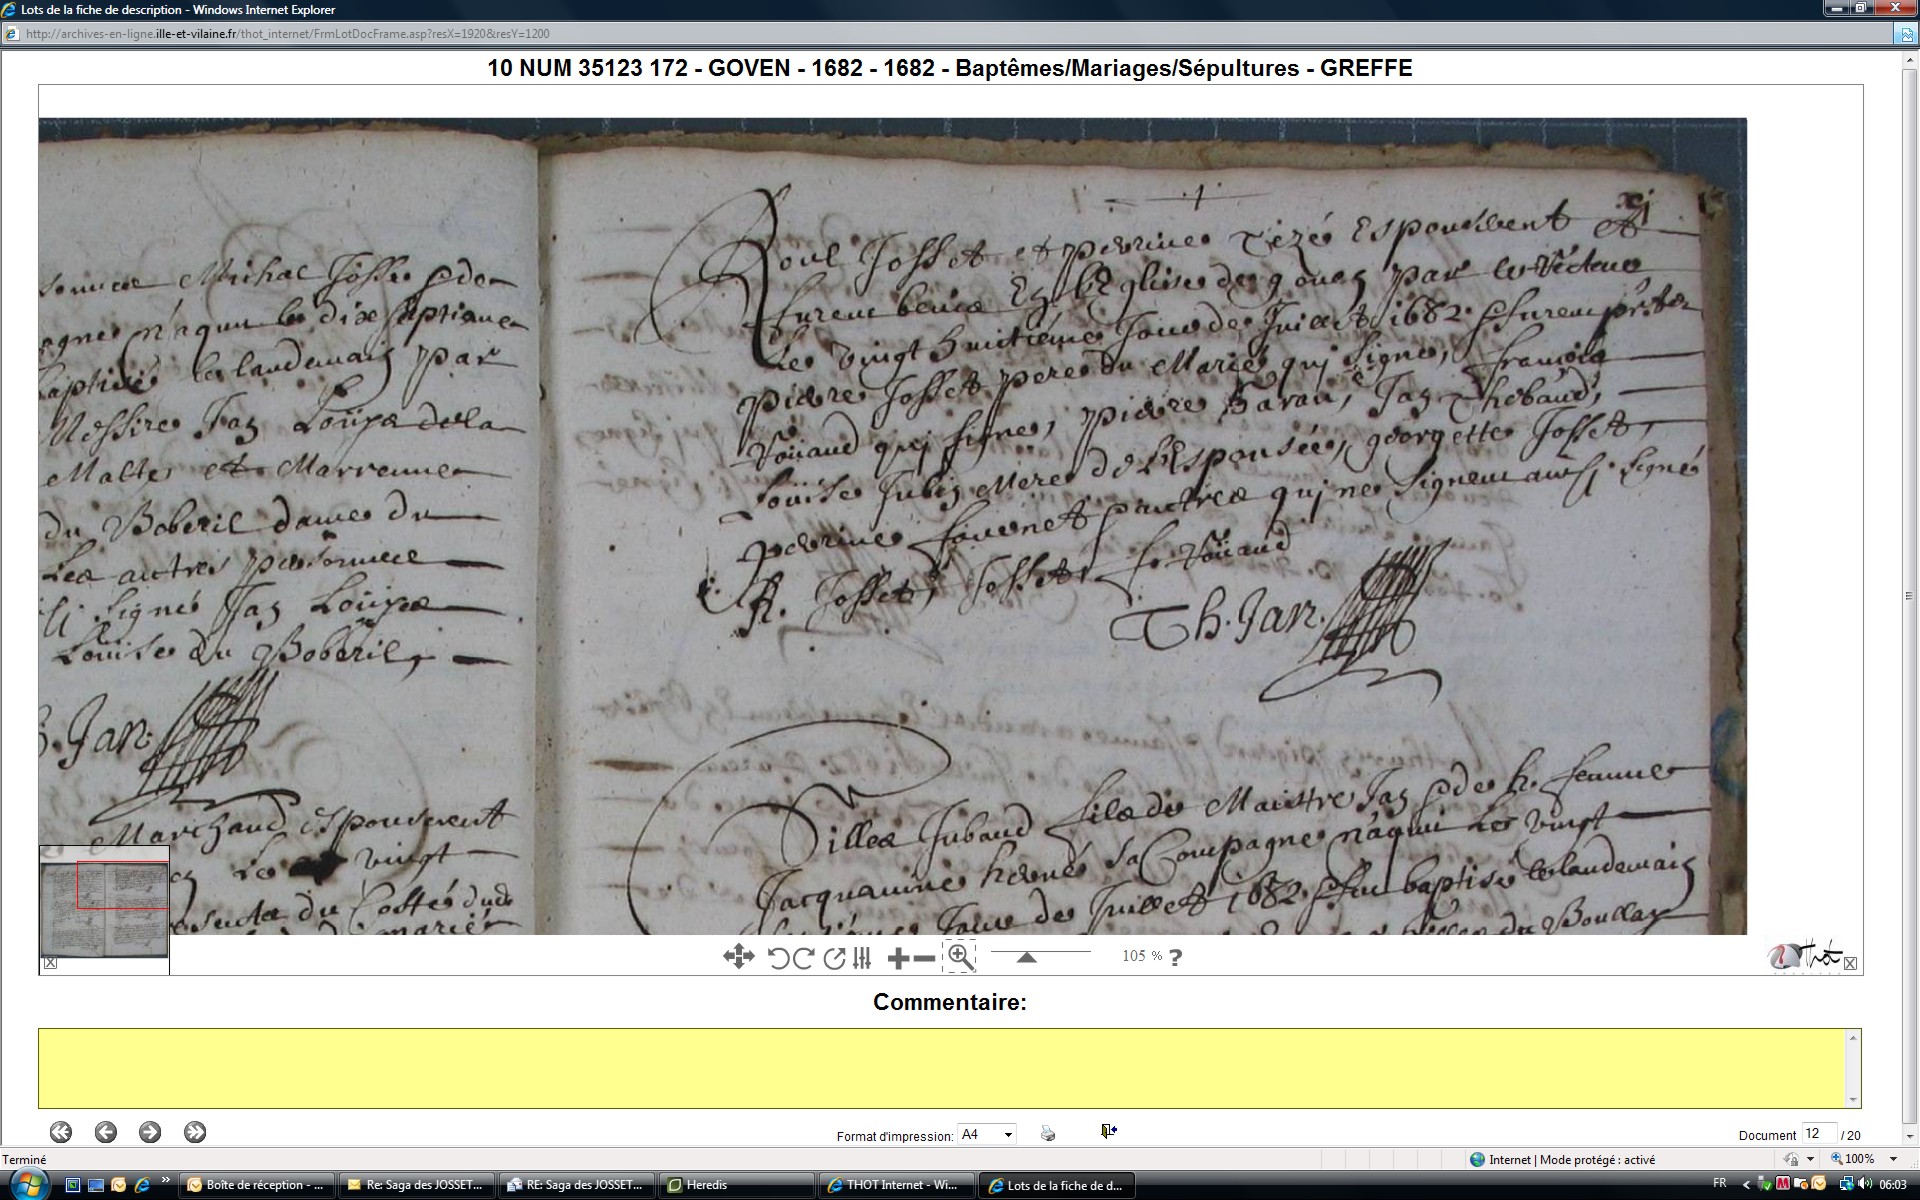 Lots de la fiche de description - Windows Internet Explorer
http://archives-en-ligne.ille-et-vilaine.fr/thot_internet/FrmLotDocFrame.asp?resX=1920&resY=1200
10 NUM 35123 172 - GOVEN - 1682 - 1682 - Baptêmes/Mariages/Sépultures - GREFFE
Michac Josse & de
n'aquit le dixe septiame
baptisé le landemain par
Messire Jan Loüys de la
Malte et Marrenne
du Boberil dame du
Les autres personnes
signé Jan Loüys
Louise du Boberil,
Jan
Marchand espouserent
Le vingt
du Costé dud
marié
xj
Raoul Josset et perrine espouserent et
furent benis En l'Eglise de gouen par le Recteur
Le vingt huitième Jour de Juillet 1682. & furent
pierre Josset pere du Marié qui signe, françois
Roüaud qui signe, pierre Jan Thebaud,
Louise Jubin Mere de l'Espousée, georgette Josset,
perrine & autres qui ne signent aussi signé
R. Josset, Josset, f. Roüaud
Th. Jan.
Gilles Jubaud fils de Maistre Jan & de h. femme
Jacquemine hervé sa Compagne n'aquit Le vingt
Jour de Juillet 1682. & fut baptisé le landemain
du Boullay
105 %
?
Thot
Commentaire:
Format d'impression: A4
Document 12 / 20
Terminé
Internet | Mode protégé : activé
100%
Boîte de réception - ...
Re: Saga des JOSSET...
RE: Saga des JOSSET...
Heredis
THOT Internet - Wi...
Lots de la fiche de d...
FR
06:03